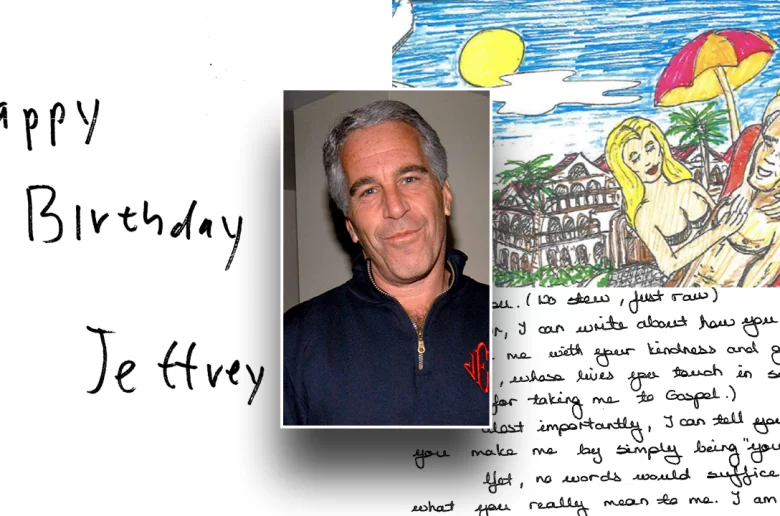 appy
Birthday
Jeffrey
(No stew, just raw)
, I can write about how you
me with your kindness and
, whose lives you touch in
for taking me to Gospel.)
Most importantly, I can tell you
you make me by simply being "you
Yet, no words would suffice
what you really mean to me. I am